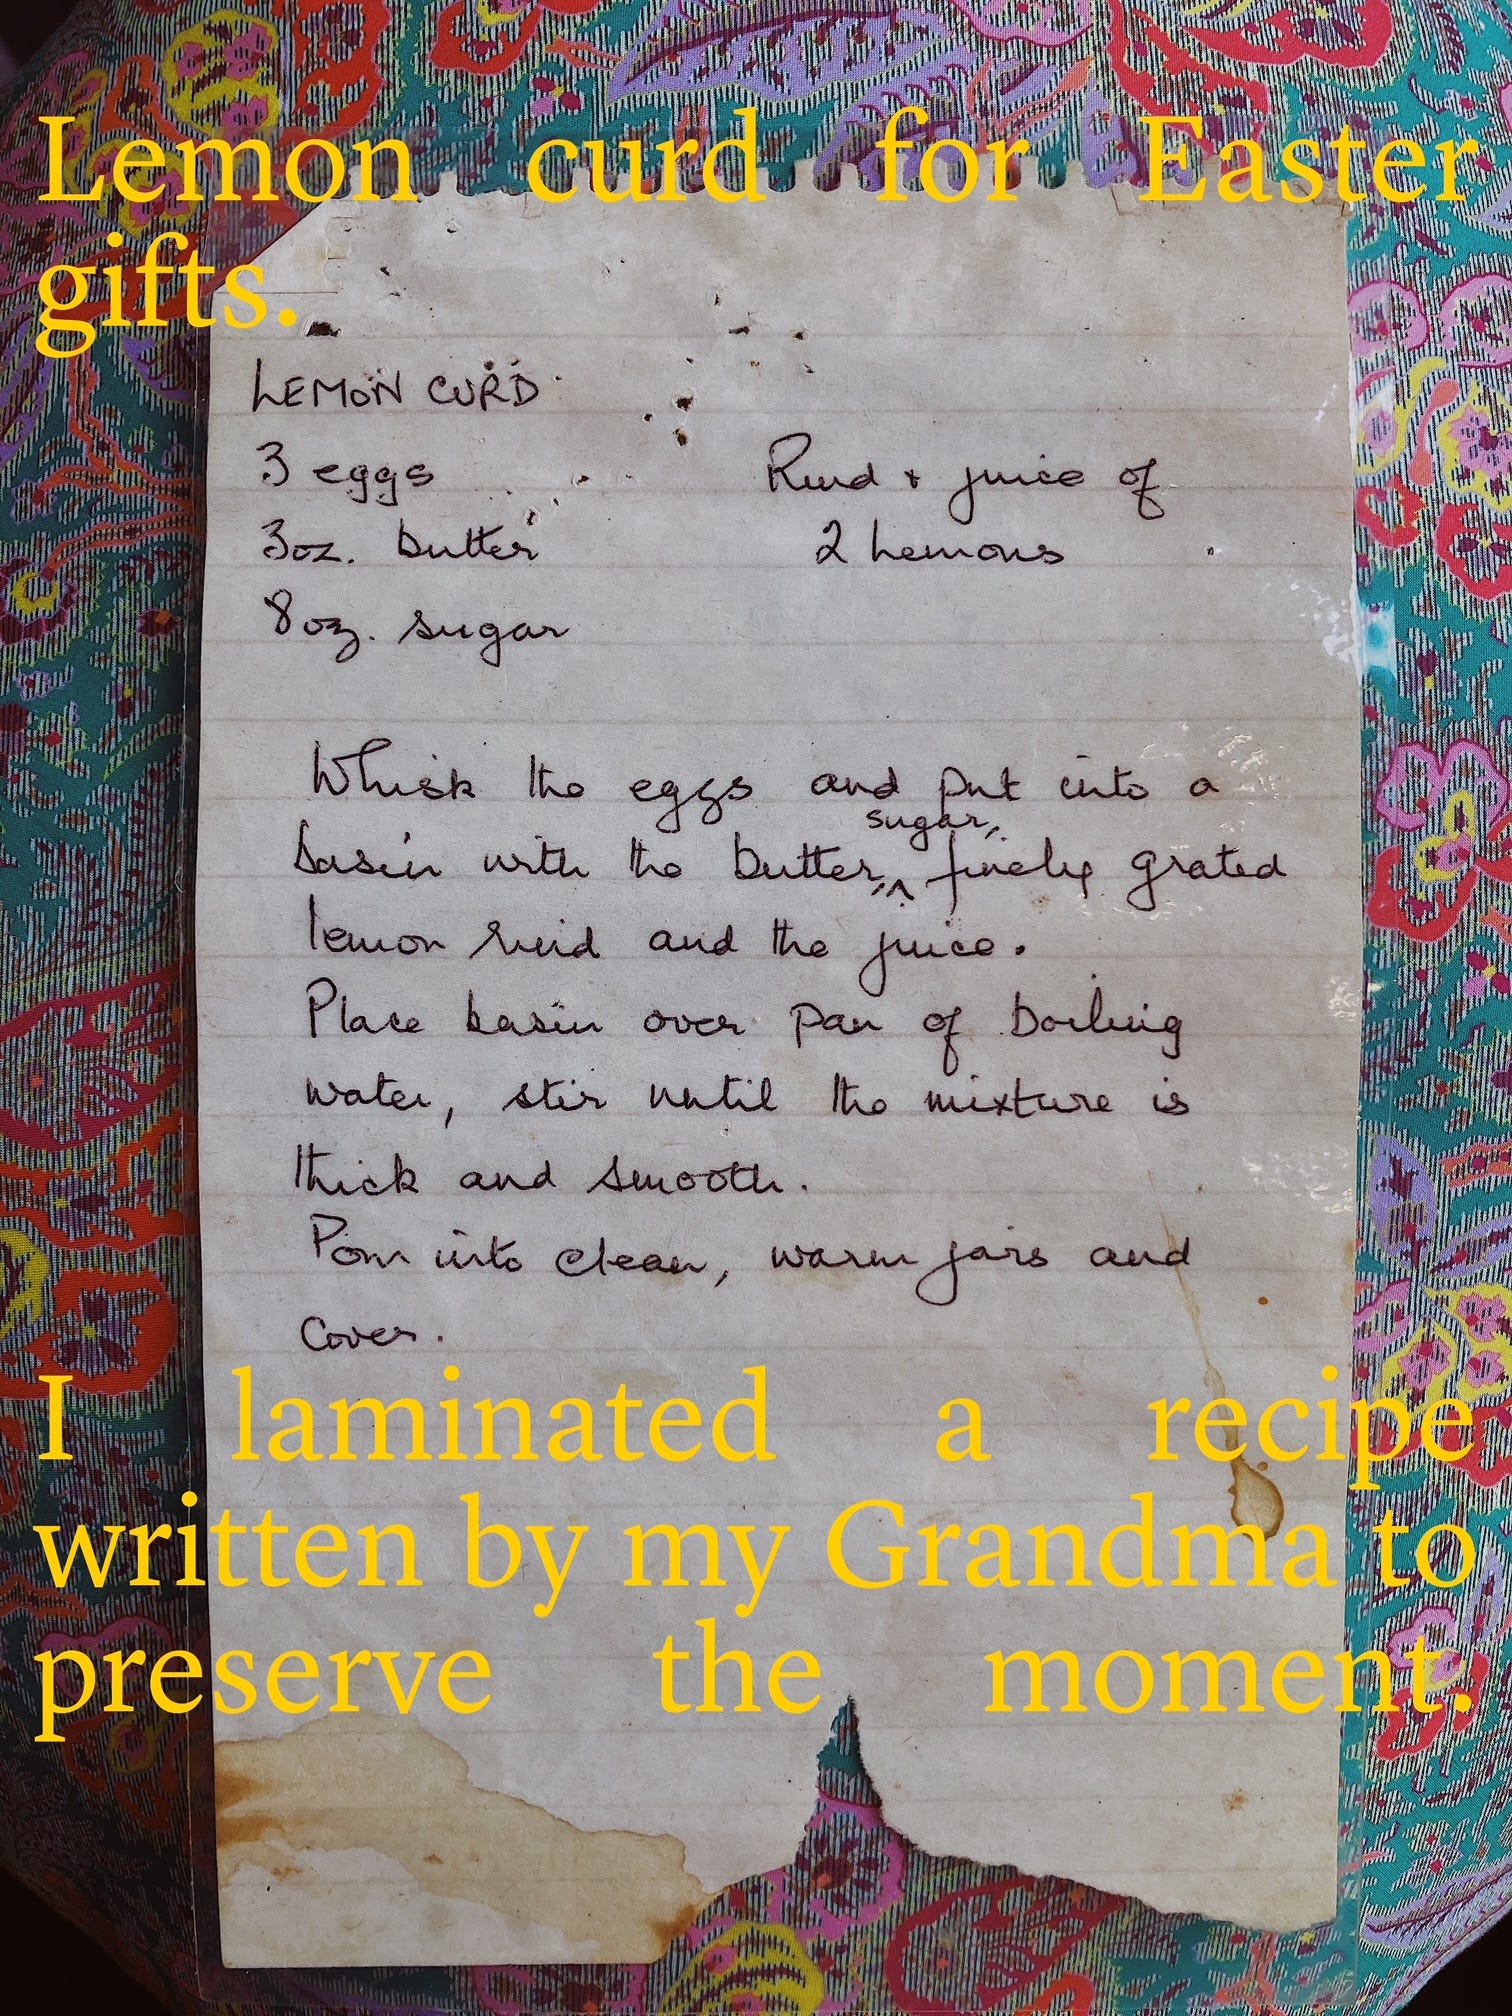 Lemon curd for Easter
gifts.
LEMON CURD
3 eggs
Rind + juice of
3oz. butter
2 Lemons
8oz. sugar
Whisk the eggs and put into a
sugar,
basin with the butter, ^ finely grated
lemon rind and the juice.
Place basin over pan of boiling
water, stir until the mixture is
thick and smooth.
Pour into clean, warm jars and
cover.
I laminated a recipe
written by my Grandma to
preserve the moment.